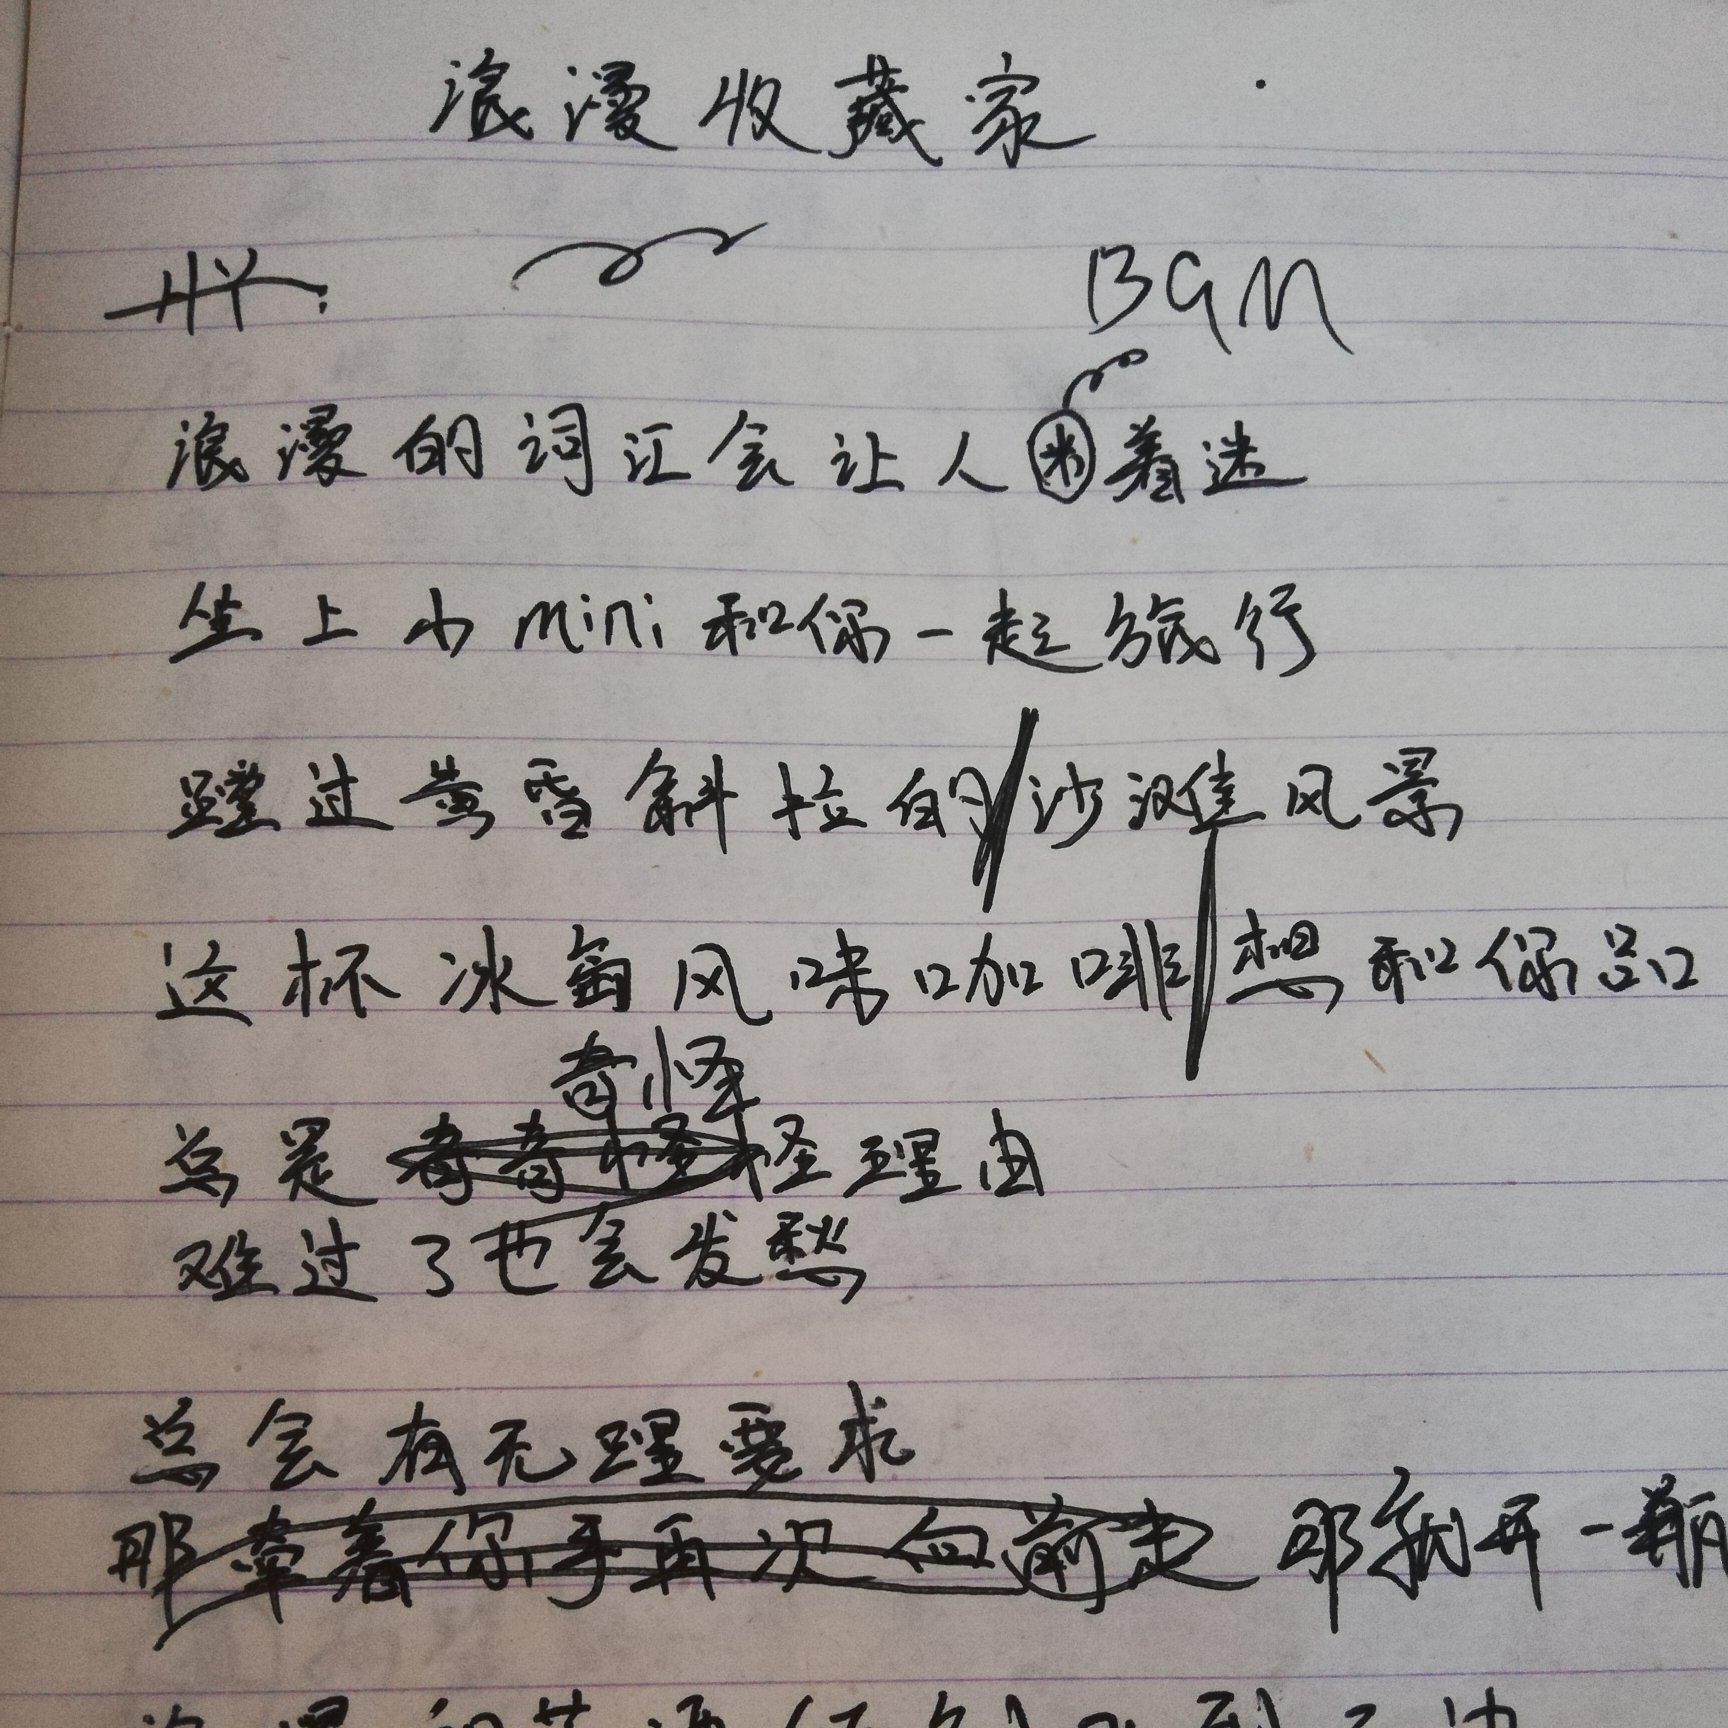 浪漫收藏家
BGM
浪漫的词汇会让人着迷
坐上小mini和你一起旅行
蹚过黄昏斜拉的/沙滩风景
这杯冰萄风味咖啡/想和你品
奇怪
总是奇奇怪怪理由
难过了也会发愁
总会有无理要求
那牵着你手再次向前走 那就开一瓶
浪漫的